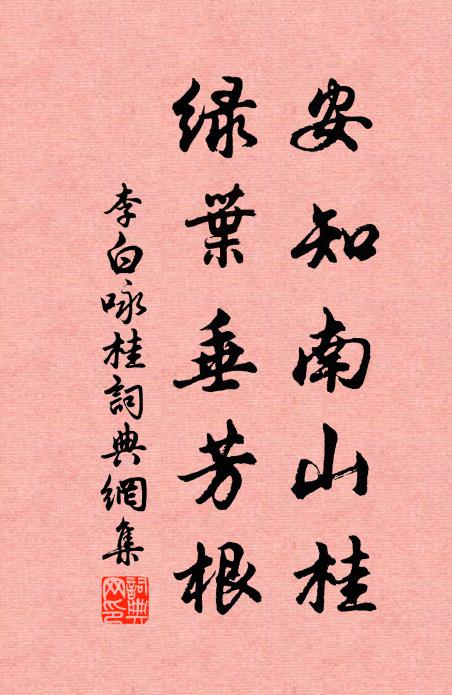 安知南山桂
綠葉垂芳根
李白咏桂詞典網集
詞典网印